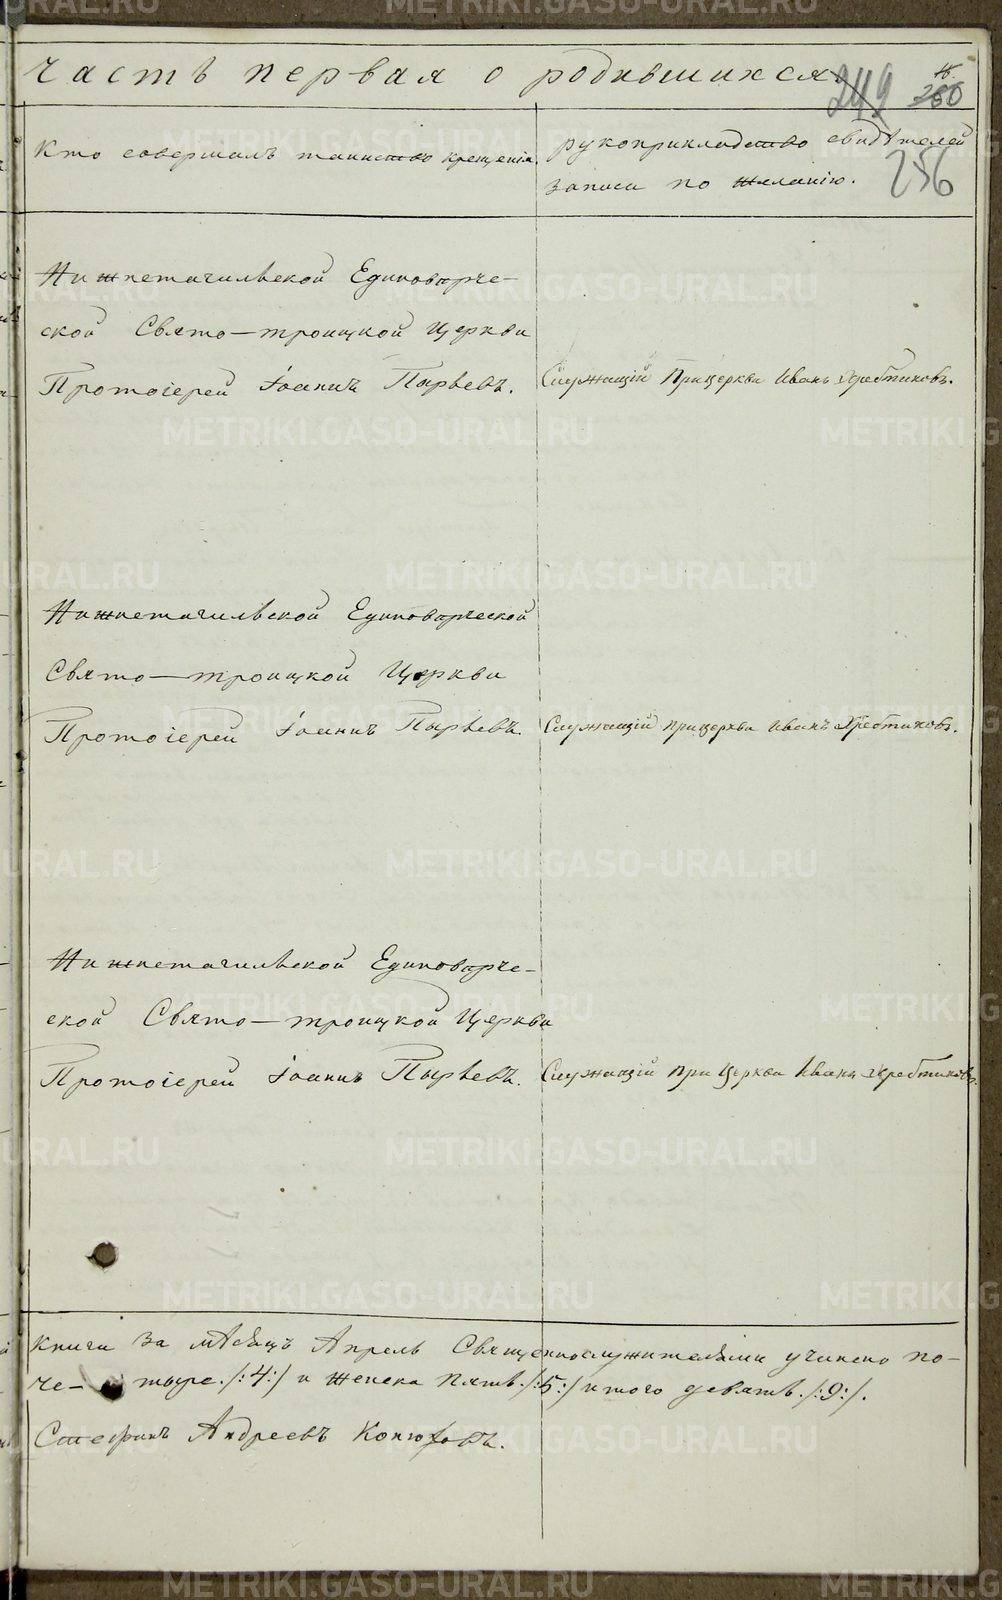 часть первая о родившихся
249 260
256
Кто совершалъ таинство крещенія.
рукоприкладство свидѣтелей
записи по желанію.
Нижнетагильской Единовѣрче-
ской Свято-троицкой Церкви
Протоіерей Іоаннъ Пырьевъ.
Служащій При церкви Иванъ
Нижнетагильской Единовѣрческой
Свято-троицкой Церкви
Протоіерей Іоаннъ Пырьевъ.
Служащій при церкви Иванъ
Нижнетагильской Единовѣрче-
ской Свято-троицкой Церкви
Протоіерей Іоаннъ Пырьевъ.
Служащій При Церкви Иванъ
книги За мѣсяцъ Апрель Священнослужителями учинено по-
че- тыре /:4:/ и женска пять /:5:/ итого девять /:9:/.
Стефанъ Андреевъ Конюховъ.
METRIKI.GASO-URAL.RU